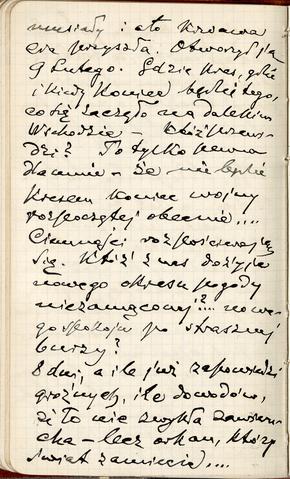 musiały : oto krwawa
era przyszła. Otworzył ją
9 Lutego. Gdzie kres, gdzie
i kiedy koniec będzie tego,
co się zaczęło na dalekim
Wschodzie – któż
To tylko pewna
dla mnie – że nie będzie
kresem koniec wojny
rozpoczętej obecnie....
Ciemności rozpościerają
się. Któż z nas dożyje
nowego okresu pogody
niezamąconej?... nowe-
go spokoju po strasznej
burzy?
8 dni, a ile już zapowiedzi
groźnych, ile dowodów,
iż to nie zwykła zawieru-
cha – lecz orkan, który
świat zamiecie....